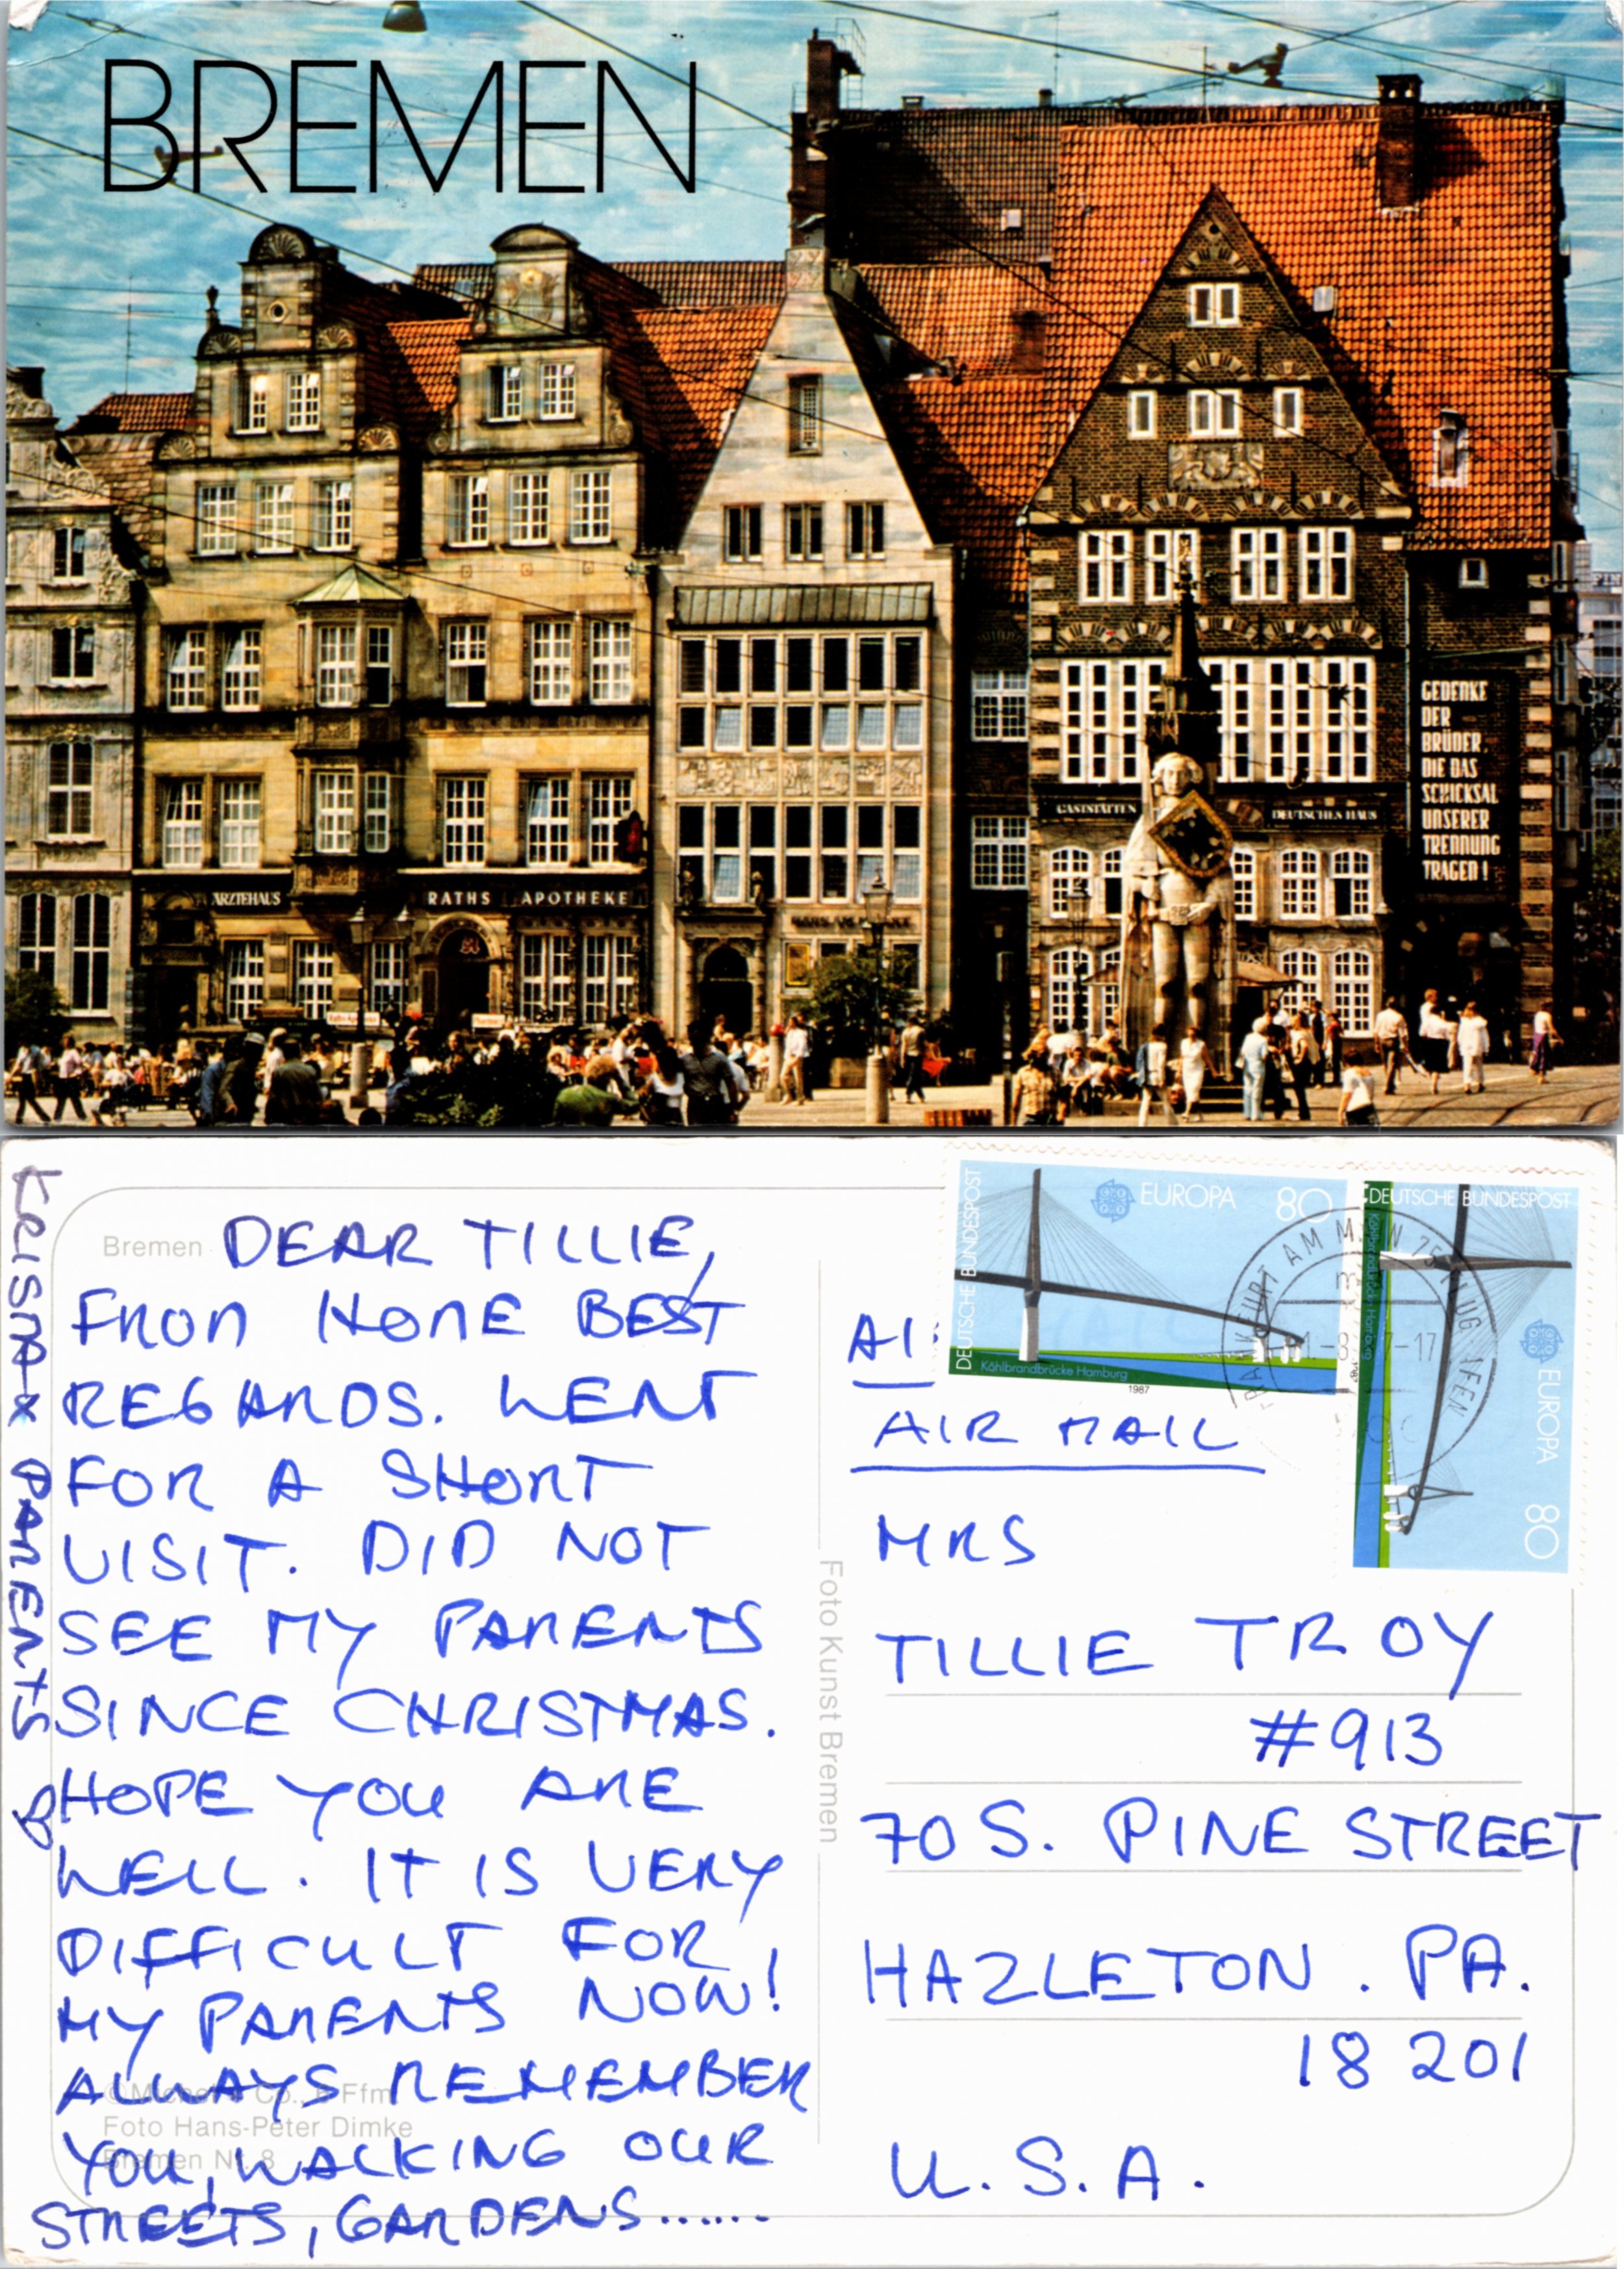 BREMEN
GEDENKE
DER
BRÜDER,
DIE DAS
SCHICKSAL
UNSERER
TRENNUNG
TRAGEN!
GASTSTÄTTEN
DEUTSCHES HAUS
ÄRZTEHAUS
RATHS APOTHEKE
Bremen
DEAR TILLIE,
FROM HOME BEST
REGARDS. WENT
FOR A SHORT
VISIT. DID NOT
SEE MY PARENTS
SINCE CHRISTMAS.
HOPE YOU ARE
WELL. IT IS VERY
DIFFICULT FOR
MY PARENTS NOW!
ALWAYS REMEMBER
YOU, WALKING OUR
STREETS, GARDENS......
PARENTS
© Michel + Co., 6 Ffm
Foto Hans-Peter Dimke
Bremen Nr. 8
Foto Kunst Bremen
DEUTSCHE BUNDESPOST
EUROPA 80
Köhlbrandbrücke Hamburg
1987
DEUTSCHE BUNDESPOST
Köhlbrandbrücke Hamburg
1987
EUROPA
80
FRANKFURT AM MAIN
AI
AIR MAIL
MRS
TILLIE TROY
#913
70 S. PINE STREET
HAZLETON. PA.
18 201
U.S.A.